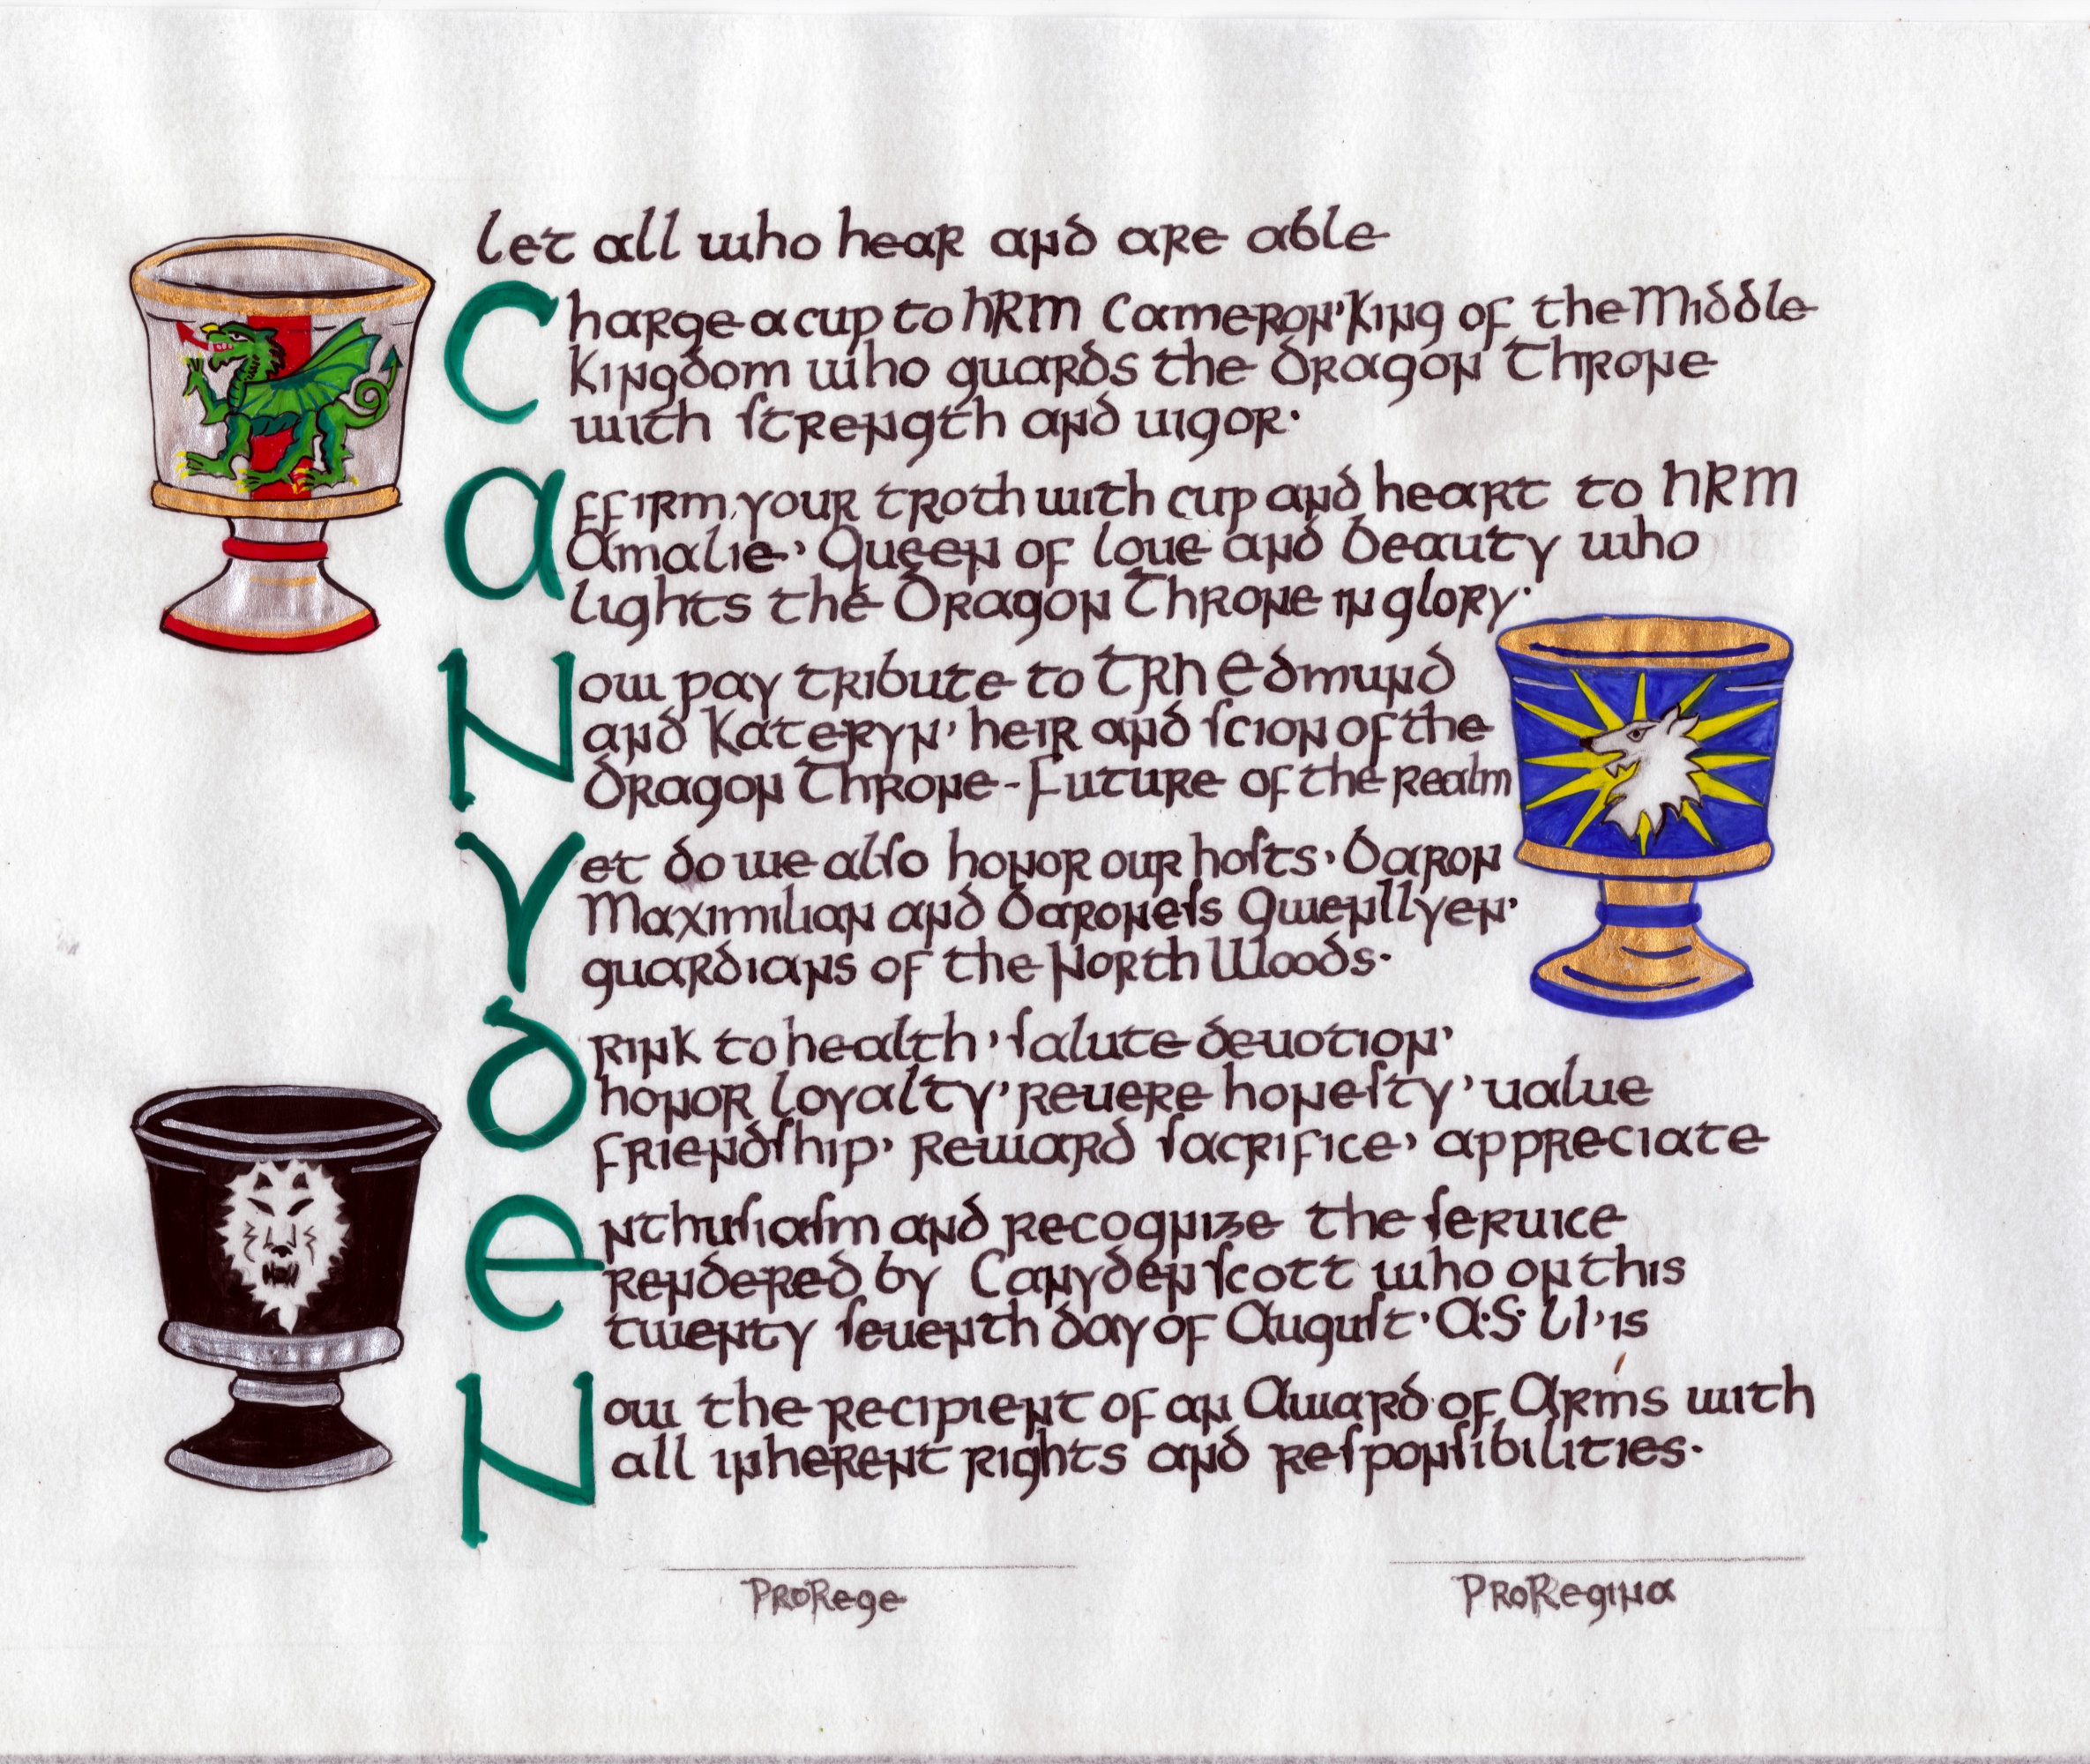 Let all who hear and are able
Charge a cup to HRM Cameron, King of the Middle
Kingdom who guards the Dragon Throne
with strength and vigor.
Affirm your troth with cup and heart to HRM
Amalie, Queen of love and beauty who
lights the Dragon Throne in glory.
Now pay tribute to TRH Edmund
and Kateryn, heir and scion of the
Dragon Throne - Future of the Realm
Yet do we also honor our hosts, Baron
Maximilian and Baroness Gwenllyen,
guardians of the North Woods.
Drink to health, salute devotion,
honor loyalty, revere honesty, value
friendship, reward sacrifice, appreciate
Enthusiasm and recognize the service
rendered by Canyden Scott who on this
twenty seventh day of August, A.S. LI, is
Now the recipient of an Award of Arms with
all inherent rights and responsibilities.
ProRege
ProRegina